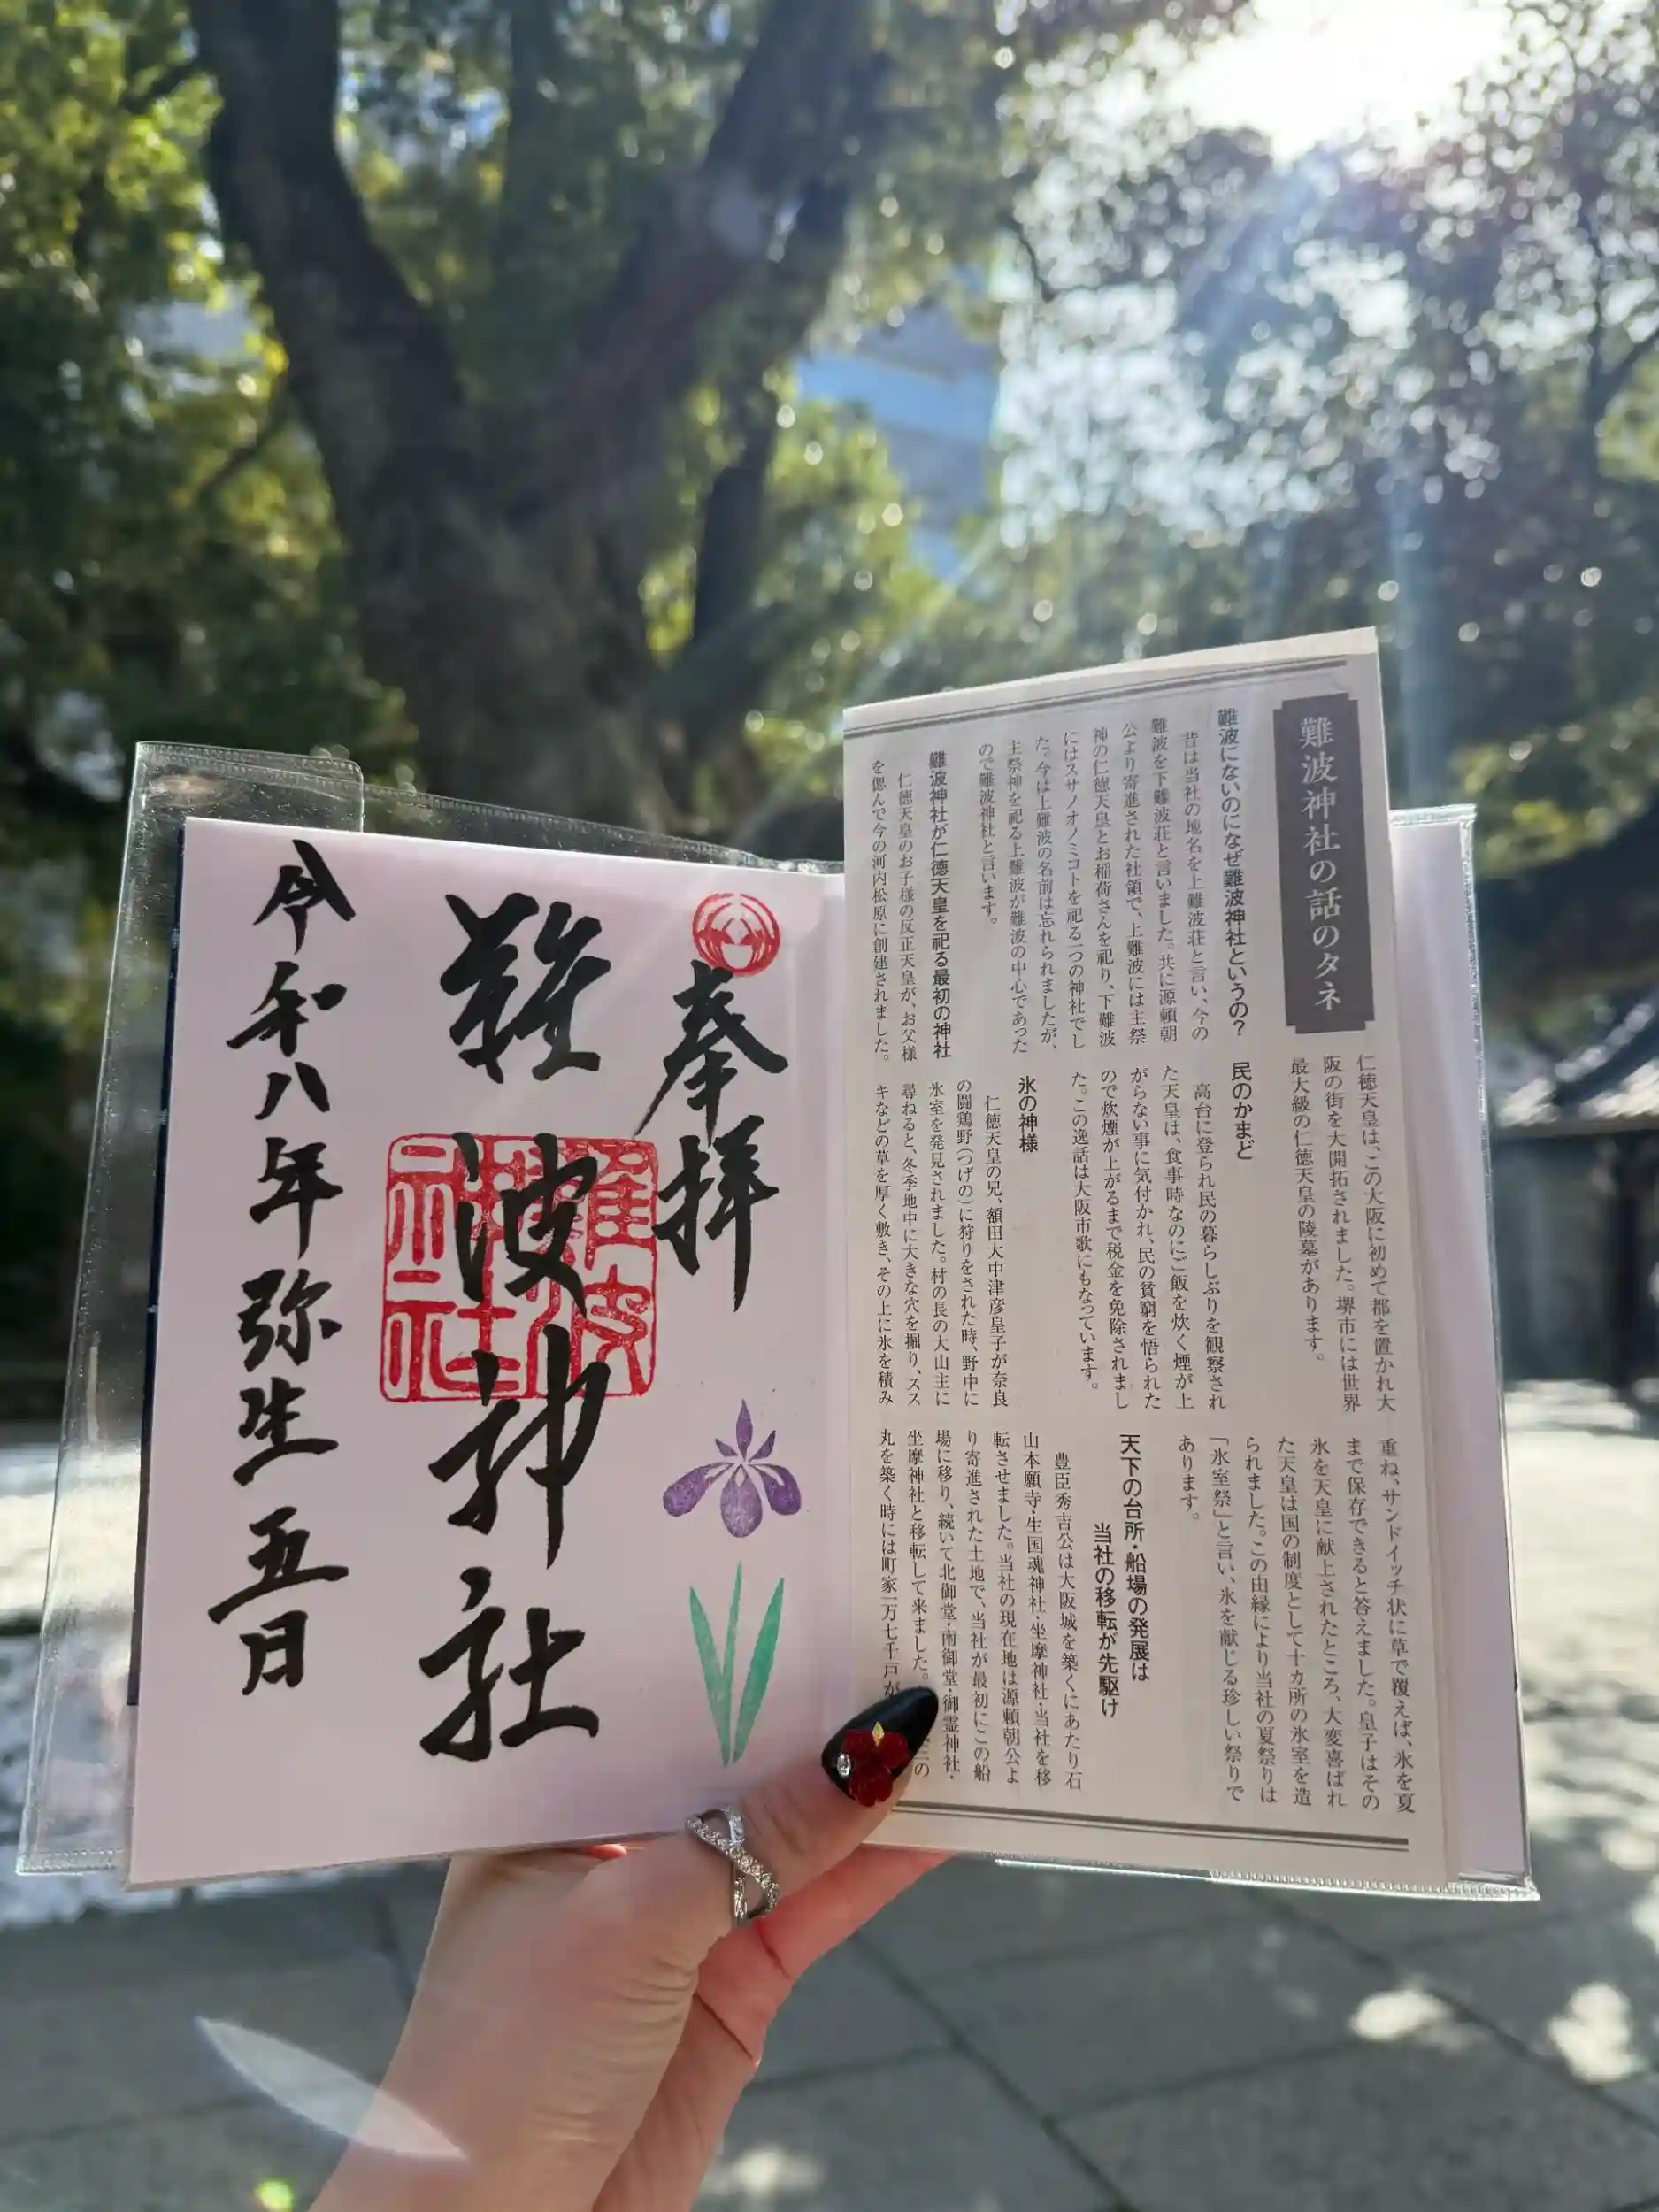 奉拝
難波神社
令和八年弥生五日
難波神社
難波神社の話のタネ
難波にないのになぜ難波神社というの？
昔は当社の地名を上難波荘と言い、今の
難波を下難波荘と言いました。共に源頼朝
公より寄進された社領で、上難波には主祭
神の仁徳天皇とお稲荷さんを祀り、下難波
にはスサノオノミコトを祀る二つの神社でし
た。今は上難波の名前は忘れられましたが、
主祭神を祀る上難波が難波の中心であった
ので難波神社と言います。
難波神社が仁徳天皇を祀る最初の神社
仁徳天皇のお子様の反正天皇が、お父様
を偲んで今の河内松原に創建されました。
仁徳天皇は、この大阪に初めて都を置かれ大
阪の街を大開拓されました。堺市には世界
最大級の仁徳天皇の陵墓があります。
民のかまど
高台に登られ民の暮らしぶりを観察され
た天皇は、食事時なのにご飯を炊く煙が上
がらない事に気付かれ、民の貧窮を悟られた
ので炊煙が上がるまで税金を免除されまし
た。この逸話は大阪市歌にもなっています。
氷の神様
仁徳天皇の兄、額田大中津彦皇子が奈良
の闘鶏野（つげの）に狩りをされた時、野中に
氷室を発見されました。村の長の大山主に
尋ねると、冬季地中に大きな穴を掘り、スス
キなどの草を厚く敷き、その上に氷を積み
重ね、サンドイッチ状に草で覆えば、氷を夏
まで保存できると答えました。皇子はその
氷を天皇に献上されたところ、大変喜ばれ
た天皇は国の制度として十カ所の氷室を造
られました。この由縁により当社の夏祭りは
「氷室祭」と言い、氷を献じる珍しい祭りで
あります。
天下の台所・船場の発展は
当社の移転が先駆け
豊臣秀吉公は大阪城を築くにあたり石
山本願寺・生国魂神社・坐摩神社・当社を移
転させました。当社の現在地は源頼朝公よ
り寄進された土地で、当社が最初にこの船
場に移り、続いて北御堂・南御堂・御霊神社・
坐摩神社と移転して来ました。
丸を築く時には町家一万七千戸が
の